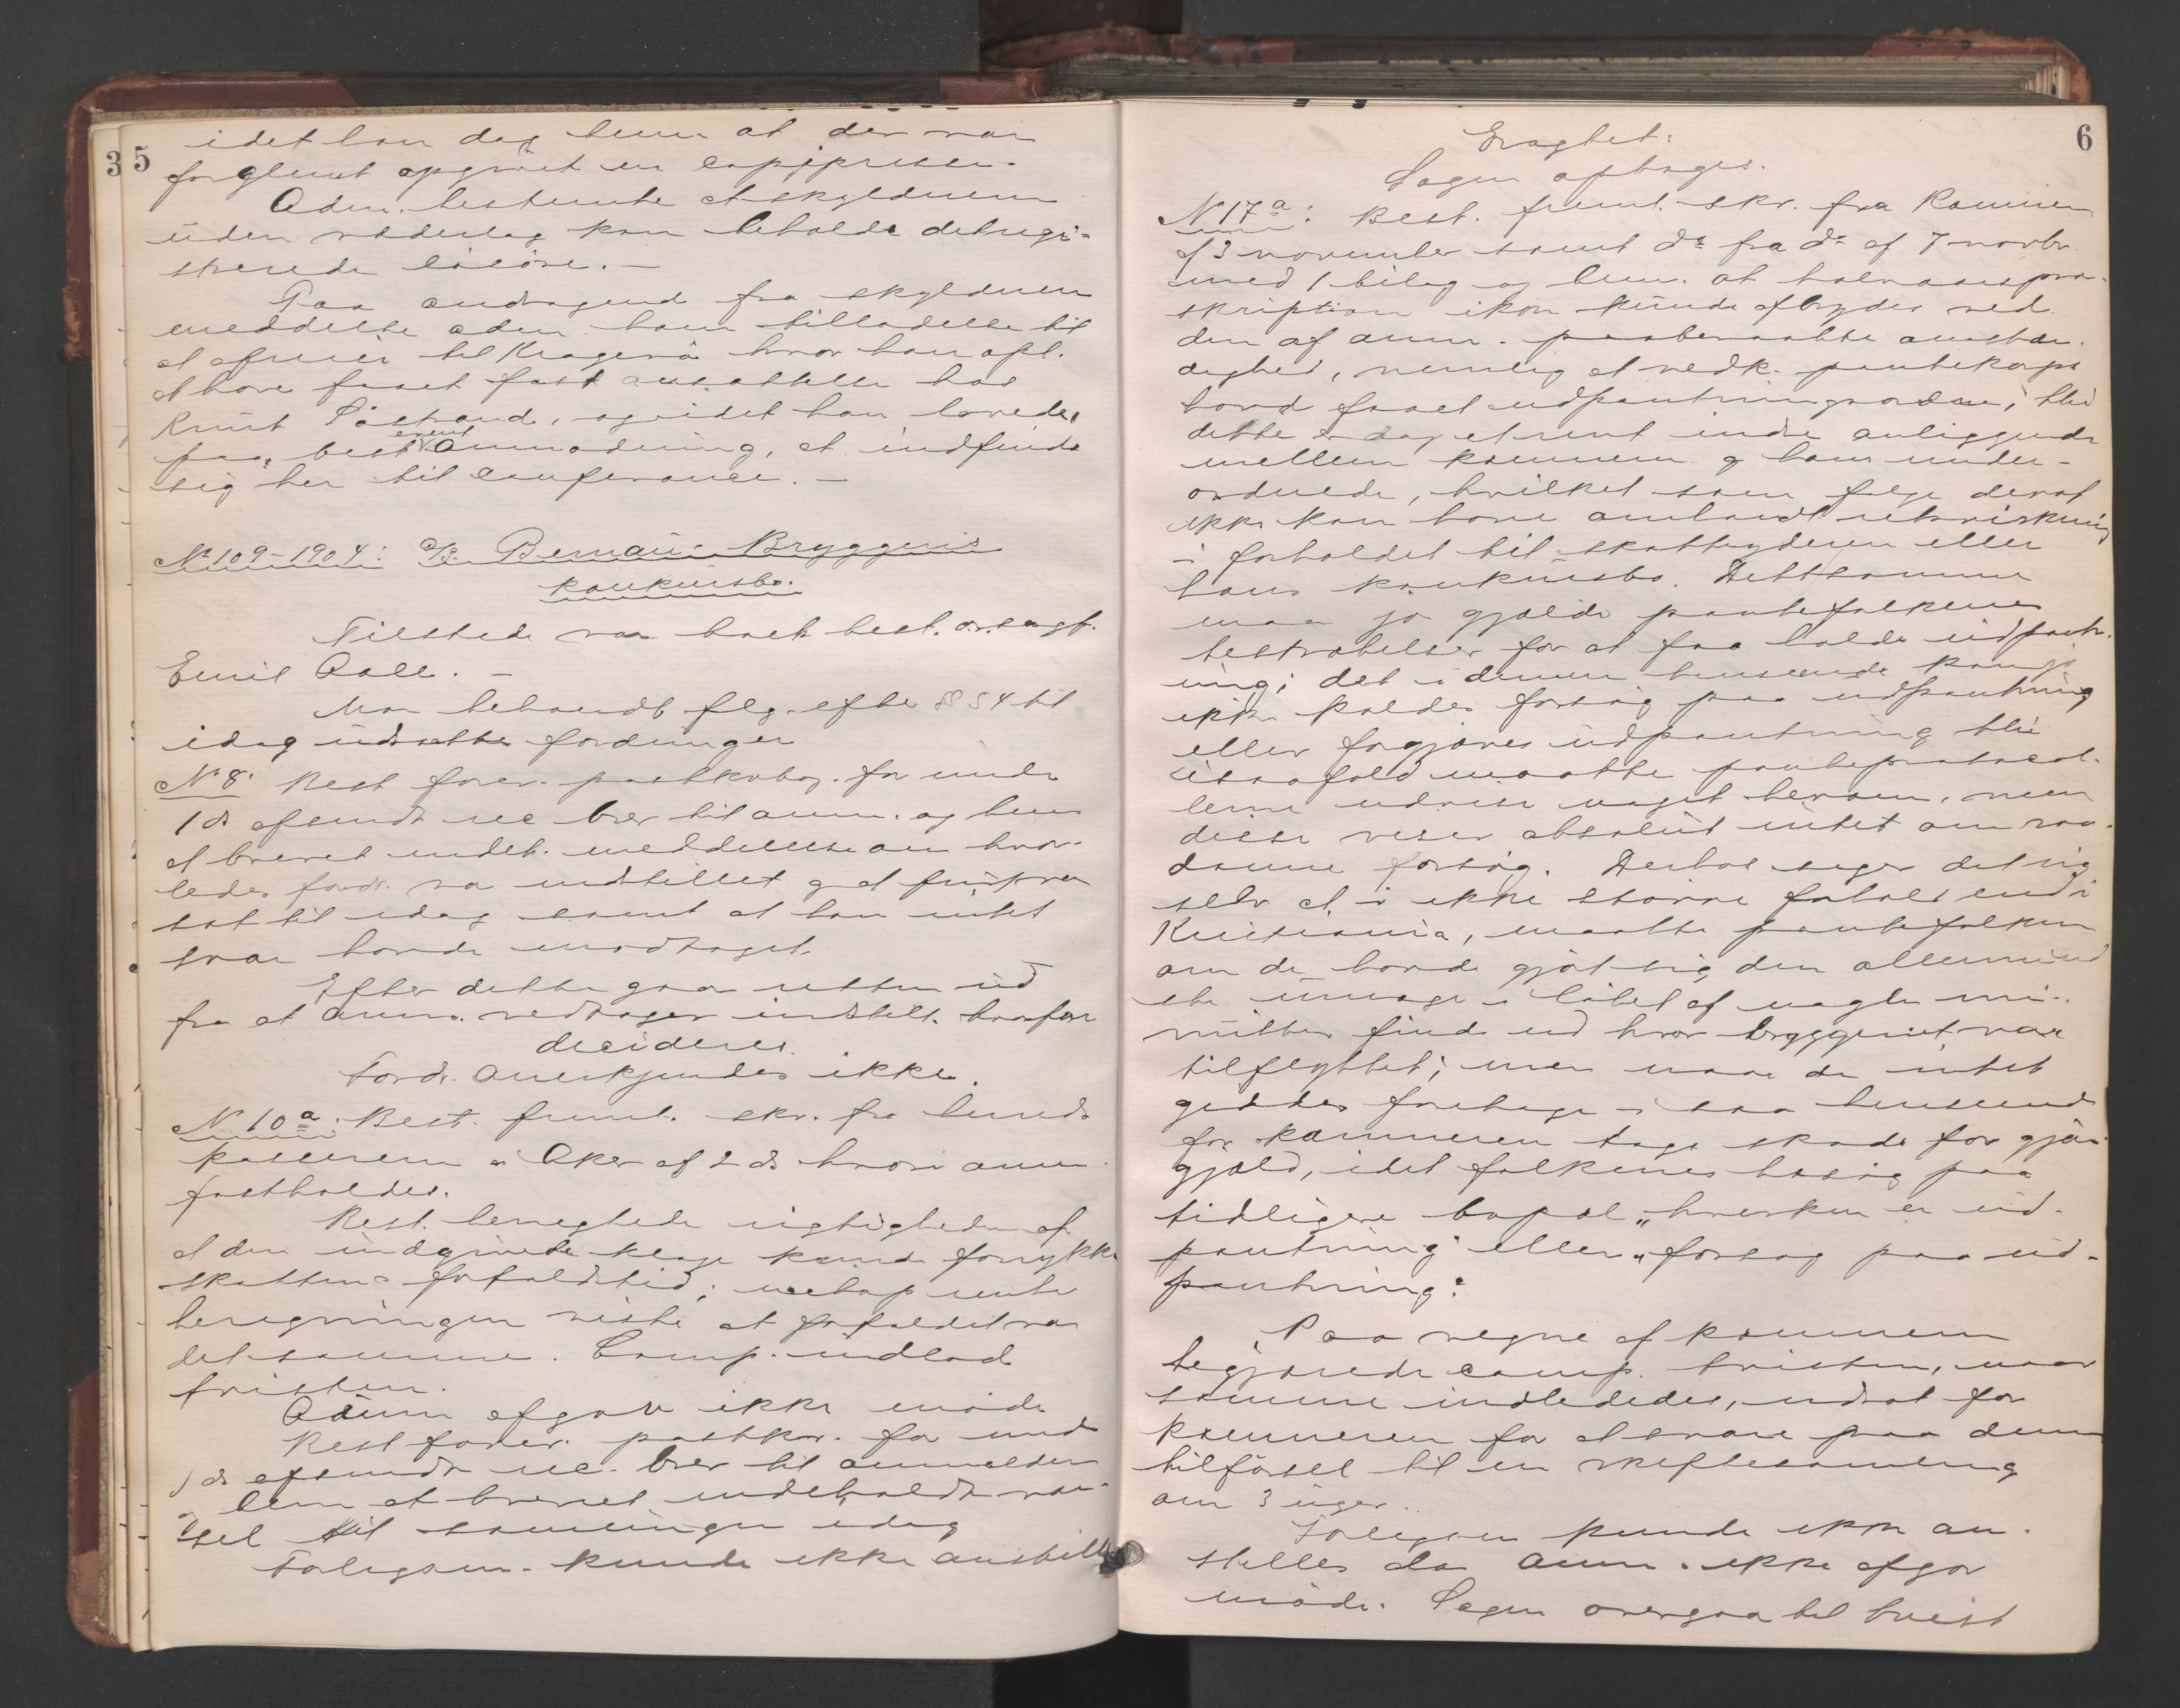 35
idet han dog bem at der var
forglemt opgivet en copipresse.
Adm. bestemte at skyldneren
uden vederlag kan beholde det regi-
strerede lösöre. —
Paa andragende fra skyldneren
meddelte adm. ham tilladelse til
at afreise til Kragerö hvor han opl.
at have faaet fast ansættelse hos
Knut, og idet han lovede,
paa best. event anmodning, at indfinde
sig her til conference. —
No 109-1904: A/S Bernaüs Bryggeris
konkursbo.
Tilstede var best. o.r.sagf.
Emil Aall. —
Man behandl. flg. efter § 54 til
idag udsatte fordringer
No 8. Best forev. postkvtbog. for under
1 ds afsendt rec brev til anm. og bem
at brevet indeh. meddelelse om hvor-
ledes fordr. var indstillet g at frist var
sat til idag samt at han intet
svar havde modtaget.
Efter dette gaar retten ud
fra at anm. vedtager indstill. hvorfor
decideres.
Fordr. anerkjendes ikke.
N 10a. Best. freml. skr. fra
kassereren i Aker af 2 ds hvori anm.
fastholdes.
Best. benegtede rigtigheden af
at den indgivne klage kunde forrykke
skattens forfaldstid;
beregningen viste at forfaldet var
det samme. Comp. indlod
tvisten.
Adm afgav ikke möde
Best forev. postkv. for und
1 ds afsendt rec. brev til anmelderen
g bem at brevet indeholdt var-
sel til samlingen idag
Forligsm. kunde ikke anstilles
6
Eragtet:
Sagen optages.
N 17a: Best. freml. skr. fra Kæmneren
af 3 november samt do fra do af 7 novbr.
med 1 bilag og bem. at halvaarspræ-
skription ikke kunde afbrydes ved
den af anm. paaberaabte omstæn-
dighed, nemlig at vedk. pantekorps
havde faaet udpantningsordre; thi
dette er dog et rent indre anliggende
mellem kæmneren g hans under-
ordnede, hvilket som fölge deraf
ikke kan have retsvirkning
i forholdet til skatteyderen eller
hans konkursbo. Det samme
maa jo gjælde pantefolkenes
bestræbelser for at faa holde udpant-
ning; det i denne henseende kan jo
ikke kaldes forsög paa udpantning
eller forgjæves udpantning thi
isaafald maatte panteprotocol-
lerne udvise noget herom, men
disse viser absolut intet om saa-
danne forsög. Derhos siger det sig
selv at i ikke större forhold end i
Kristiania, maatte pantefolkene
om de havde gjört sig den allermind-
ste umage i löbet af nogle mi-
nutter finde ud hvor bryggeriet var
tilflyttet; men naar de intet
gidder foretage i saa henseende
faar kæmneren tage skade for gjæn-
gjæld, idet folkenes besög paa
tidligere bopæl „hverken er ud-
pantning" eller „forsög paa ud-
pantning."
Paa vegne af kæmneren
begjærede comp. tvisten, naar
samme indlededes, udsat for
kæmneren for at svare paa denne
tilförsel til en skiftesamling
om 3 uger.
Forligsm kunde ikke an-
stilles da anm. ikke afgav
möde. Sagen overgaar til tvist